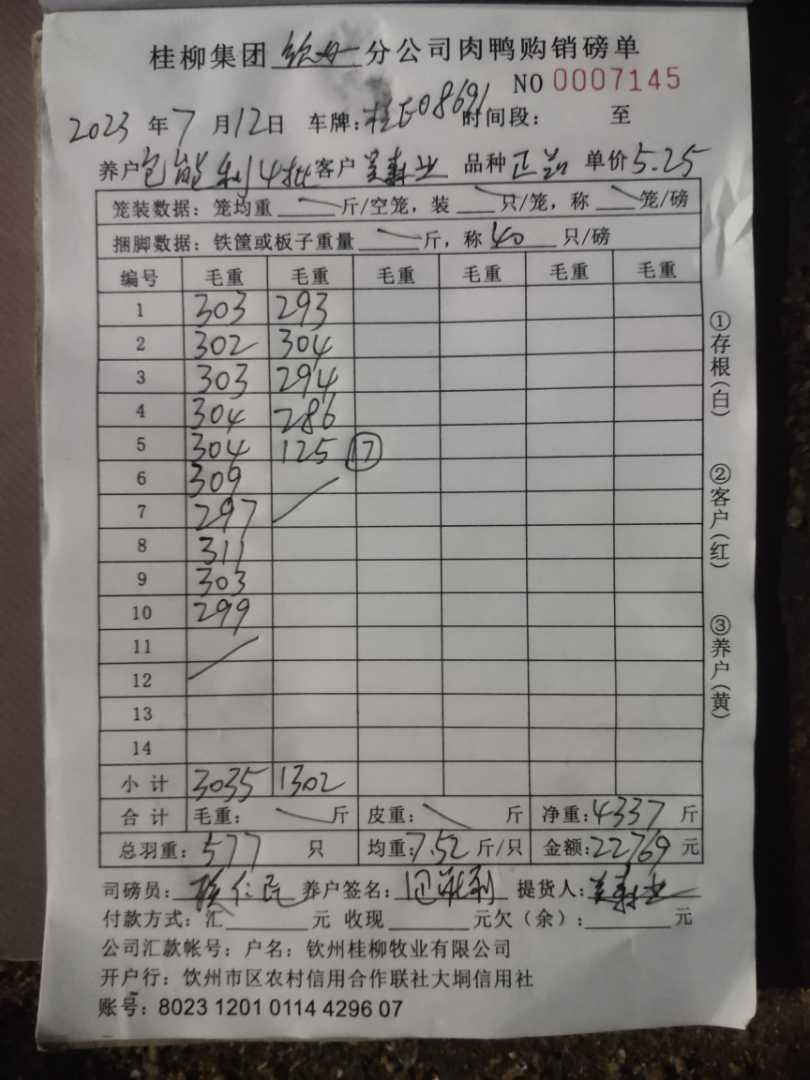 桂柳集团 钦州 分公司肉鸭购销磅单
NO 0007145
2023 年 7 月 12 日 车牌: 桂E08691 时间段: 至
养户 批 客户 业 品种 正品 单价 5.25
笼装数据: 笼均重 斤/空笼, 装 只/笼, 称 笼/磅
捆脚数据: 铁筐或板子重量 斤, 称 40 只/磅
编号 毛重 毛重 毛重 毛重 毛重 毛重
1 303 293
2 302 304
3 303 294
4 304 286
5 304 125 ⑰
6 309
7 297
8 311
9 303
10 299
11
12
13
14
小计 3035 1302
合计 毛重: 斤 皮重: 斤 净重: 4337 斤
总羽重: 577 只 均重: 7.52 斤/只 金额: 22769 元
司磅员: 养户签名: 提货人:
付款方式: 汇 元 收现 元欠(余): 元
公司汇款帐号: 户名: 钦州桂柳牧业有限公司
开户行: 饮州市区农村信用合作联社大垌信用社
账号: 8023 1201 0114 4296 07
①存根(白)
②客户(红)
③养户(黄)